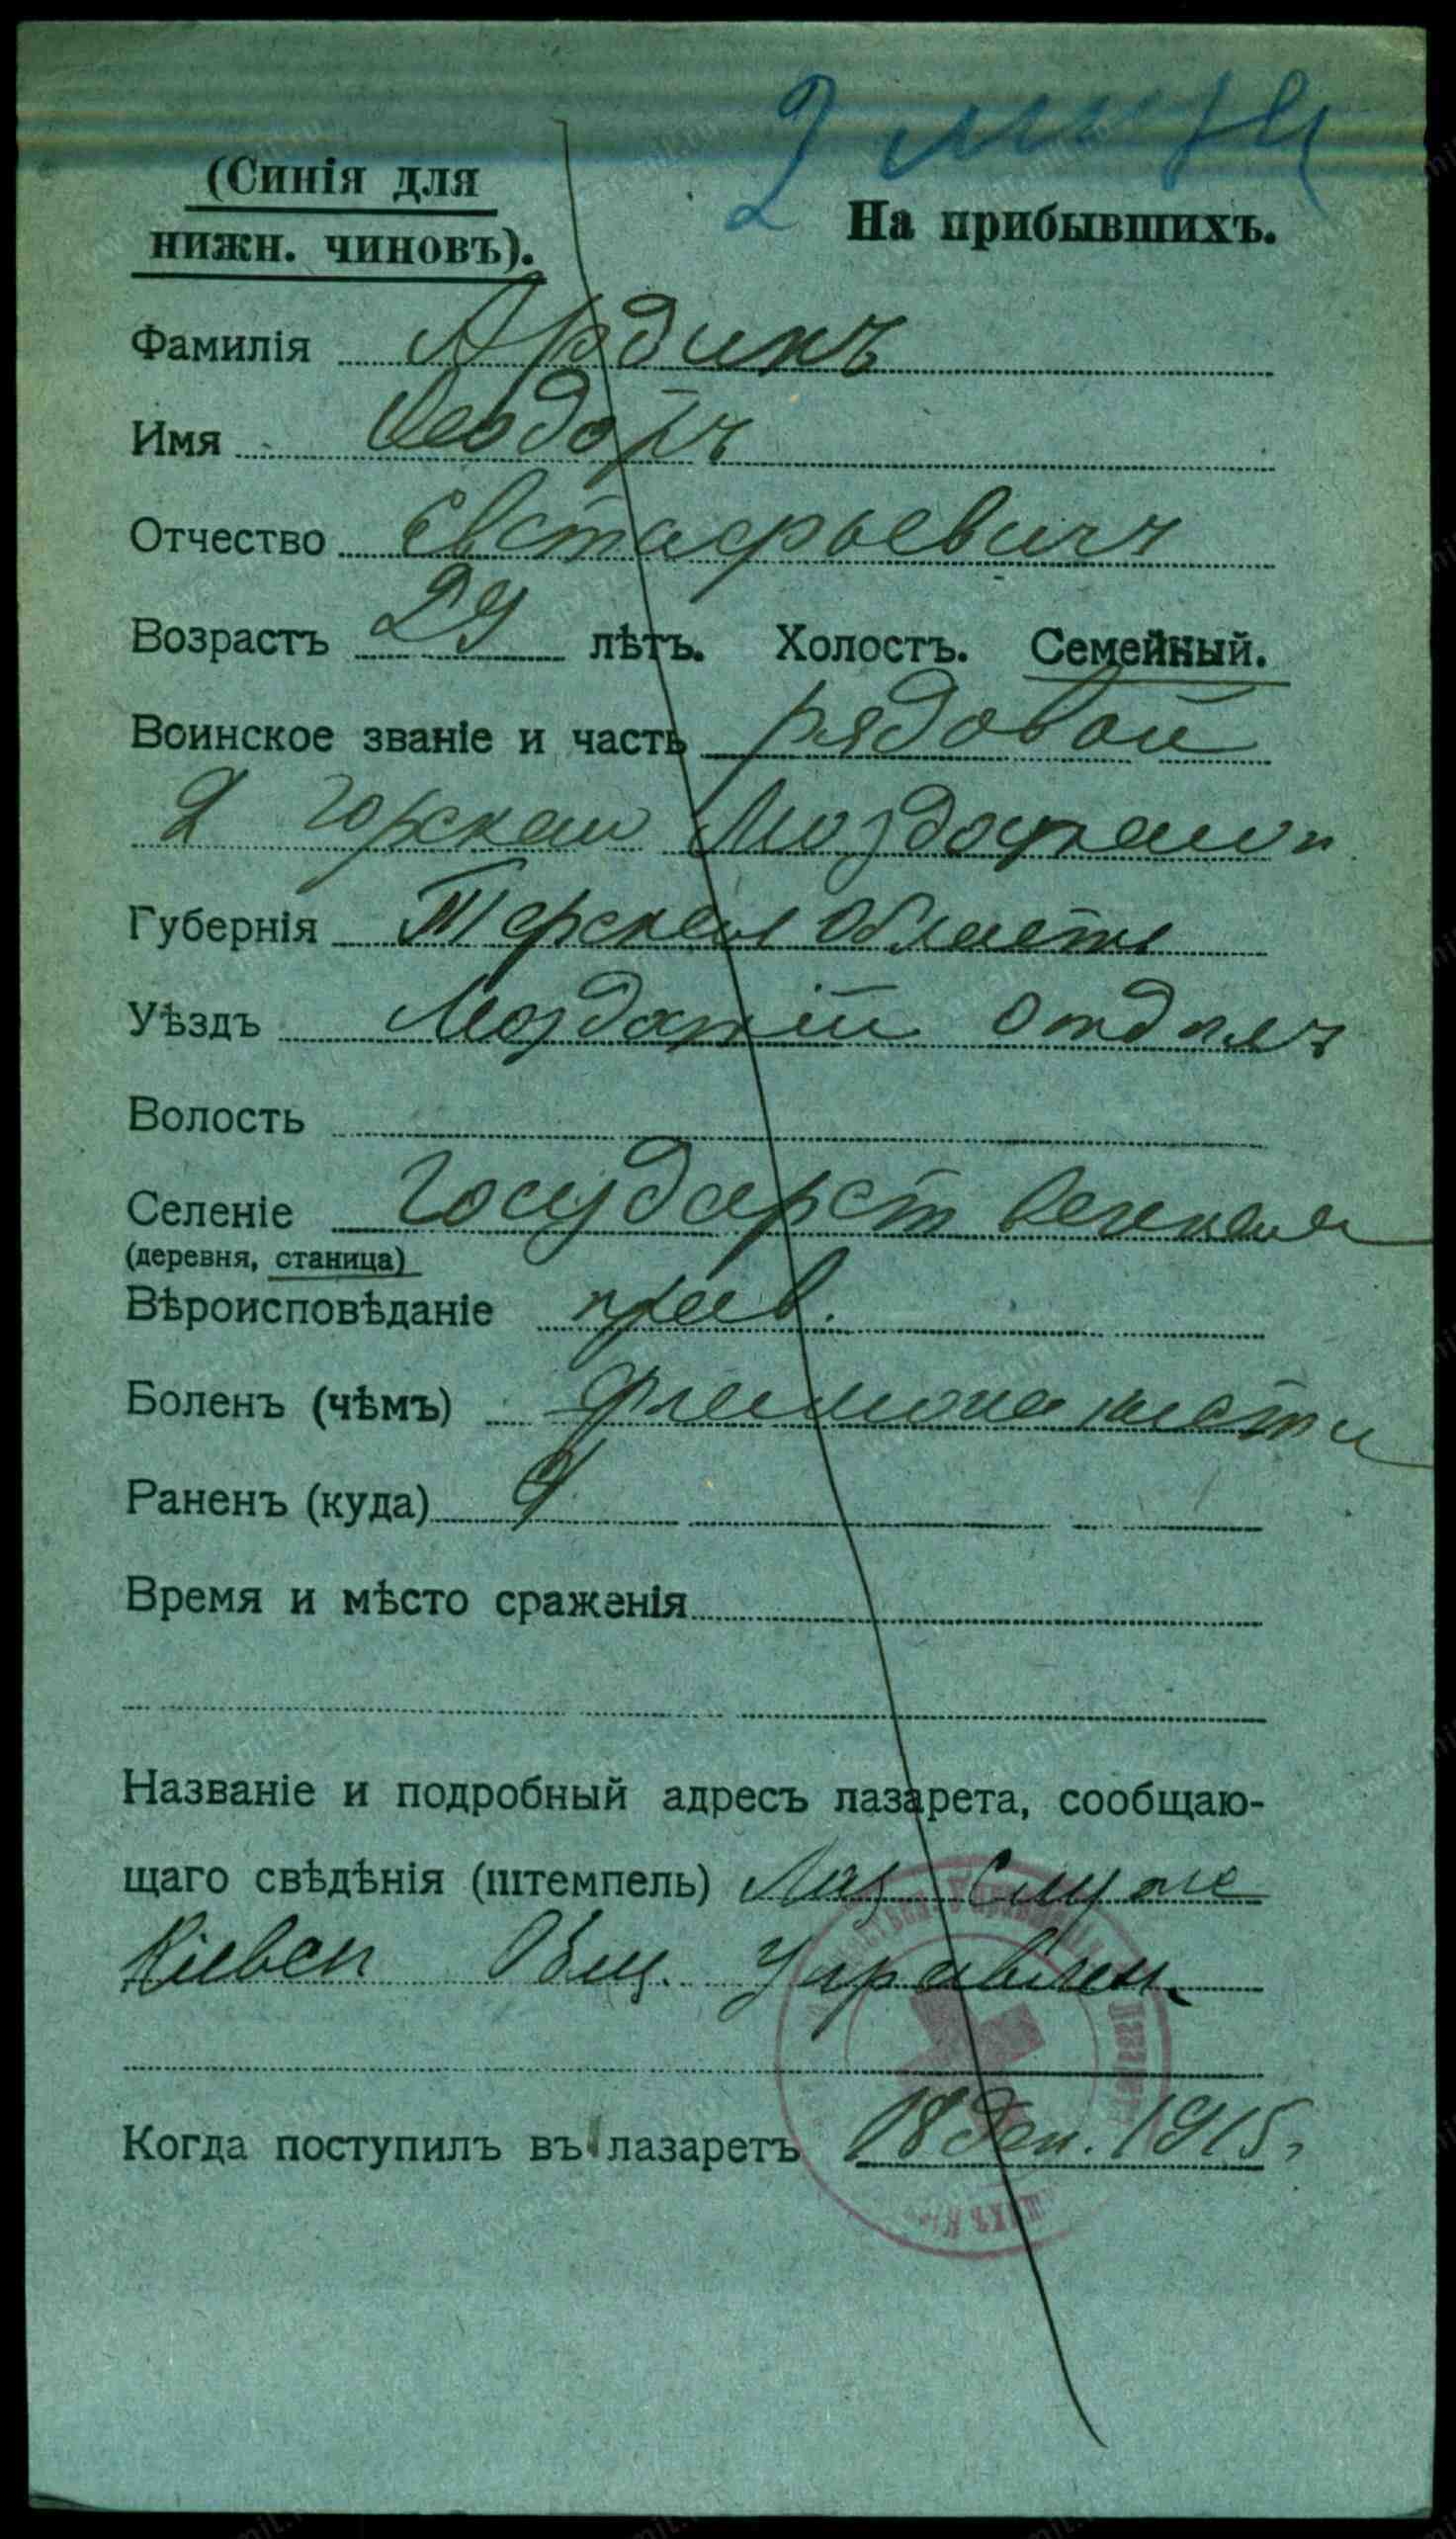 (Синія для
нижн. чиновъ).
На прибывшихъ.
Фамилія Ардинъ
Имя Ѳеодоръ
Отчество Евстафьевичъ
Возрастъ 29 лѣтъ. Холостъ. Семейный.
Воинское званіе и часть рядовой
2 Горско
Губернія Терская Область
Уѣздъ отдѣлъ
Волость
Селеніе Государственная
(деревня, станица)
Вѣроисповѣданіе прав.
Боленъ (чѣмъ) Флегмона кисти
Раненъ (куда)
Время и мѣсто сраженія
Названіе и подробный адресъ лазарета, сообщаю-
щаго свѣдѣнія (штемпель) Лаз. Служ
Кіевск Общ. Управлен.
Когда поступилъ въ лазаретъ 18 Дек. 1915 г.